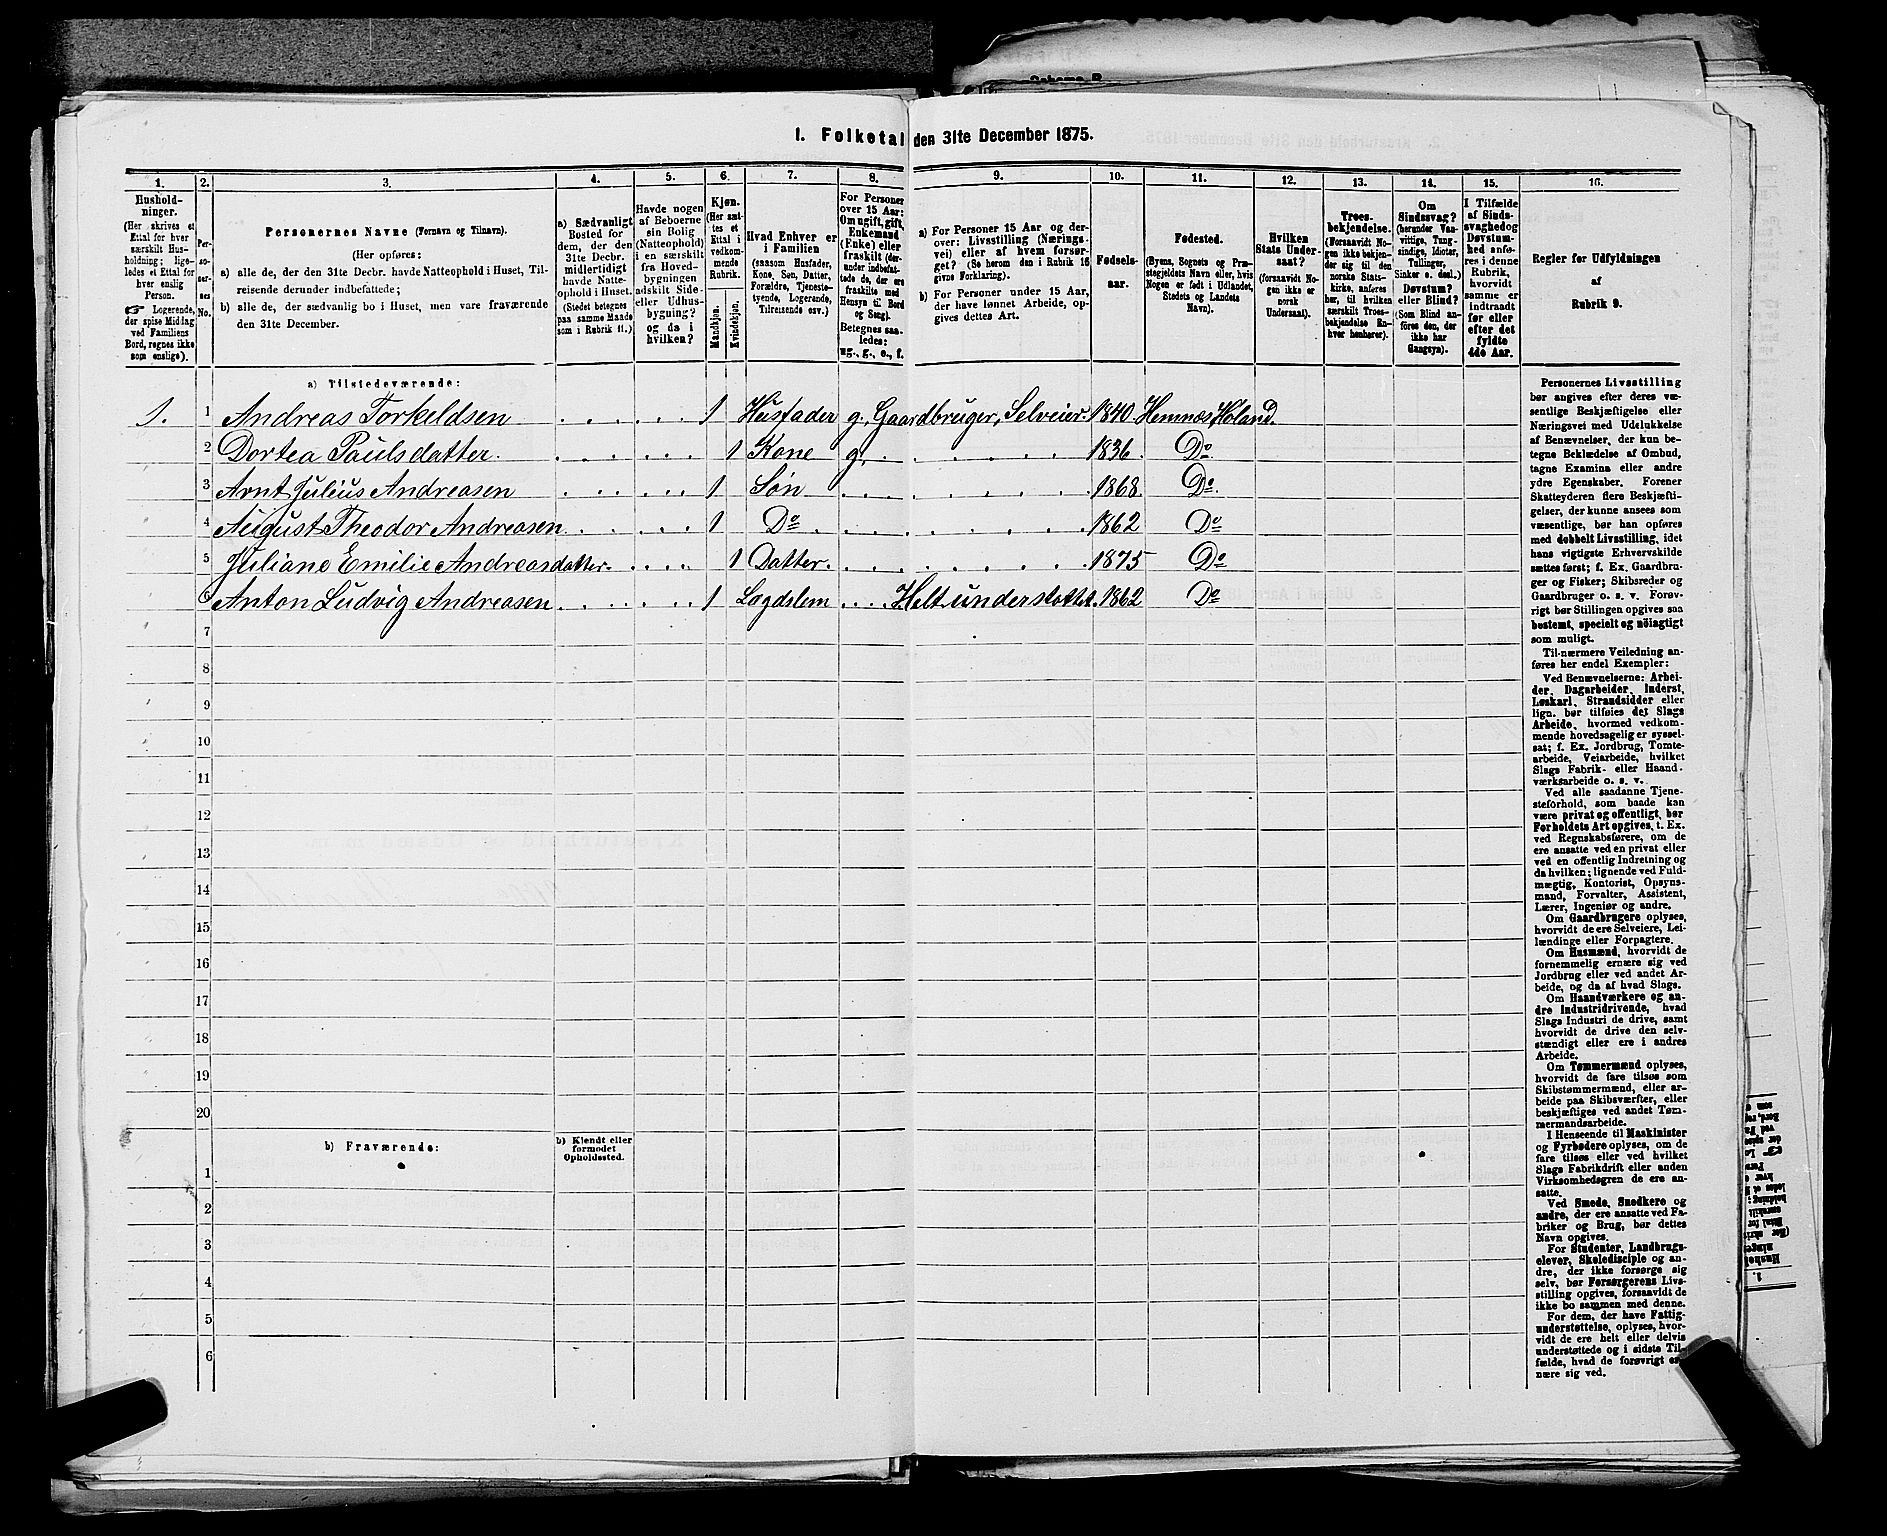 1. Folketal den 31te December 1875.
1. 2. 3. 4. 5. 6. 7. 8. 9. 10. 11. 12. 13. 14. 15. 16.
Hushold-
ninger.
(Her skrives et
Ettal for hver
særskilt Hus-
holdning; lige-
ledes et Ettal for
hver enslig
Person.
☞ Logerende,
der spise Middag
ved Familiens
Bord, regnes ikke
som enslige).
Per-
so-
ner-
nes
No.
Personernes Navne (Fornavn og Tilnavn).
(Her opføres:
a) alle de, der den 31te Decbr. havde Natteophold i Huset, Til-
reisende derunder indbefattede;
b) alle de, der sædvanlig bo i Huset, men vare fraværende
den 31te December.
a) Sædvanligt
Bosted for
dem, der den
31te Decbr.
midlertidigt
havde Natte-
ophold i Huset.
(Stedet betegnes
paa samme Maade
som i Rubrik 11.)
Havde nogen
af Beboerne
sin Bolig
(Natteophold)
i en særskilt
fra Hoved-
bygningen
adskilt Side-
eller Udhus-
bygning?
og da i
hvilken?
Kjøn.
(Her sæt-
tes et
Ettal i
vedkom-
mende
Rubrik.
Mandkjøn.
Kvindekjøn.
Hvad Enhver er
i Familien
(saasom Husfader,
Kone, Søn, Datter,
Forældre, Tjeneste-
tyende, Logerende,
Tilreisende osv.)
For Personer
over 15 Aar:
Om ugift, gift,
Enkemand
(Enke) eller
fraskilt (der-
under indbefat-
tede de, der ere
fraskilte med
Hensyn til Bord
og Seng).
Betegnes saa-
ledes:
ug., g., e., f.
a) For Personer 15 Aar og der-
over: Livsstilling (Nærings-
vei) eller af hvem forsør-
get? (Se herom den i Rubrik 16
givne Forklaring).
b) For Personer under 15 Aar,
der have lønnet Arbeide, op-
gives dettes Art.
Fødsels-
aar.
Fødested.
(Byens, Sognets og Præ-
stegjeldets Navn eller, hvis
Nogen er født i Udlandet,
Stedets og Landets
Navn).
Hvilken
Stats Under-
saat?
(forsaavidt No-
gen ikke er
norsk
Undersaat).
Troes-
bekjendelse.
(Forsaavidt No-
gen ikke bekjen-
der sig til den
norske Stats-
kirke, anføres
her, til hvilken
særskilt Troes-
bekjendelse En-
hver henhører).
Om
Sindssvag?
(herunder Van-
vittige, Tung-
sindige, Idioter,
Tullinger,
Sinker o. desl.)
Døvstum?
eller Blind?
(Som Blind an-
føres den, der
ikke har
Gangsyn).
I Tilfælde
af Sinds-
svaghed og
Døvstum-
hed anfø-
res i denne
Rubrik,
hvorvidt
samme er
indtraadt
før eller
efter det
fyldte
4de Aar.
Regler for Udfyldningen
af
Rubrik 9.
a) Tilstedeværende:
1. 1 Andreas Torkeldsen 1 Husfader g. Gaardbruger, Selveier 1840 Hemnæs Høland.
2 Dortea Paulsdatter. 1 Kone g. 1836 Do
3 Arnt Julius Andreasen 1 Søn 1868 Do.
4 August Theodor Andreasen 1 Do 1862 Do
5 Juliane Emilie Andreasdatter. 1 Datter. 1875 Do
6 Anton Ludvig Andreasen 1 Lægdslem Helt understøttet. 1862 Do
7
8
9
10
11
12
13
14
15
16
17
18
19
20
b) Fraværende:
b) Kjendt eller
formodet
Opholdssted.
1
2
3
4
5
6
Personernes Livsstilling
bør angives efter deres væ-
sentlige Beskjæftigelse eller
Næringsvei med Udelukkelse
af Benævnelser, der kun be-
tegne Beklædelse af Ombud,
tagne Examina eller andre
ydre Egenskaber. Forener
Skatteyderen flere Beskjæfti-
gelser, der kunne ansees som
væsentlige, bør han opføres
med dobbelt Livsstilling, idet
hans vigtigste Erhvervskilde
sættes først; f. Ex. Gaardbru-
ger og Fisker; Skibsreder og
Gaardbruger o. s. v. Forøv-
rigt bør Stillingen opgives saa
bestemt, specielt og nöiagtigt
som muligt.
Til nærmere Veiledning an-
føres her endel Exempler:
Ved Benævnelserne: Arbei-
der, Dagarbeider, Inderst,
Løskarl, Strandsidder eller
lign. bør tilføies det Slags
Arbeide, hvormed vedkom-
mende hovedsagelig er syssel-
sat; f. Ex. Jordbrug, Tomte-
arbeide, Veiarbeide, hvilket
Slags Fabrik- eller Haand-
værksarbeide o. s. v.
Ved alle saadanne Tjene-
steforhold, som baade kan
være privat og offentligt, bør
Forholdets Art opgives, t. Ex.
ved Regnskabsførere, om de
ere ansatte ved en privat eller
ved en offentlig Indretning og
da hvilken; lignende ved Fuld-
mægtig, Kontorist, Opsyns-
mand, Forvalter, Assistent,
Lærer, Ingeniør og andre.
Om Gaardbrugere oplyses,
hvorvidt de ere Selveiere, Lei-
lændinge eller Forpagtere.
Om Husmænd, hvorvidt de
fornemmelig ernære sig ved
Jordbrug eller ved andet Ar-
beide, og da af hvad Slags.
Om Haandværkere og an-
dre Industridrivende, hvad
Slags Industri de drive, samt
hvorvidt de drive den selv-
stændigt eller ere i andres
Arbeide.
Om Tømmermænd oplyses,
hvorvidt de fare tilsøs som
Skibstømmermænd, eller ar-
beide paa Skibsværfter, eller
beskjæftiges ved andet Tøm-
mermandsarbeide.
I Henseende til Maskinister
og Fyrbødere oplyses, om de
fare tilsøs eller ved hvilket
Slags Fabrikdrift eller anden
Virksomhedsgren de ere an-
satte.
Ved Smede, Snedkere og
andre, der ere ansatte ved Fa-
briker og Brug, bør dettes
Navn opgives.
For Studenter, Landbrugs-
elever, Skoledisciple og an-
dre, der ikke forsørge sig
selv, bør Forsørgerens Livs-
stilling opgives, forsaavidt de
ikke bo sammen med denne.
For dem, der have Fattig-
understøttelse, oplyses, hvor-
vidt de ere helt eller delvis
understøttede og i sidste Til-
fælde, hvad de forøvrigt er-
nære sig ved.